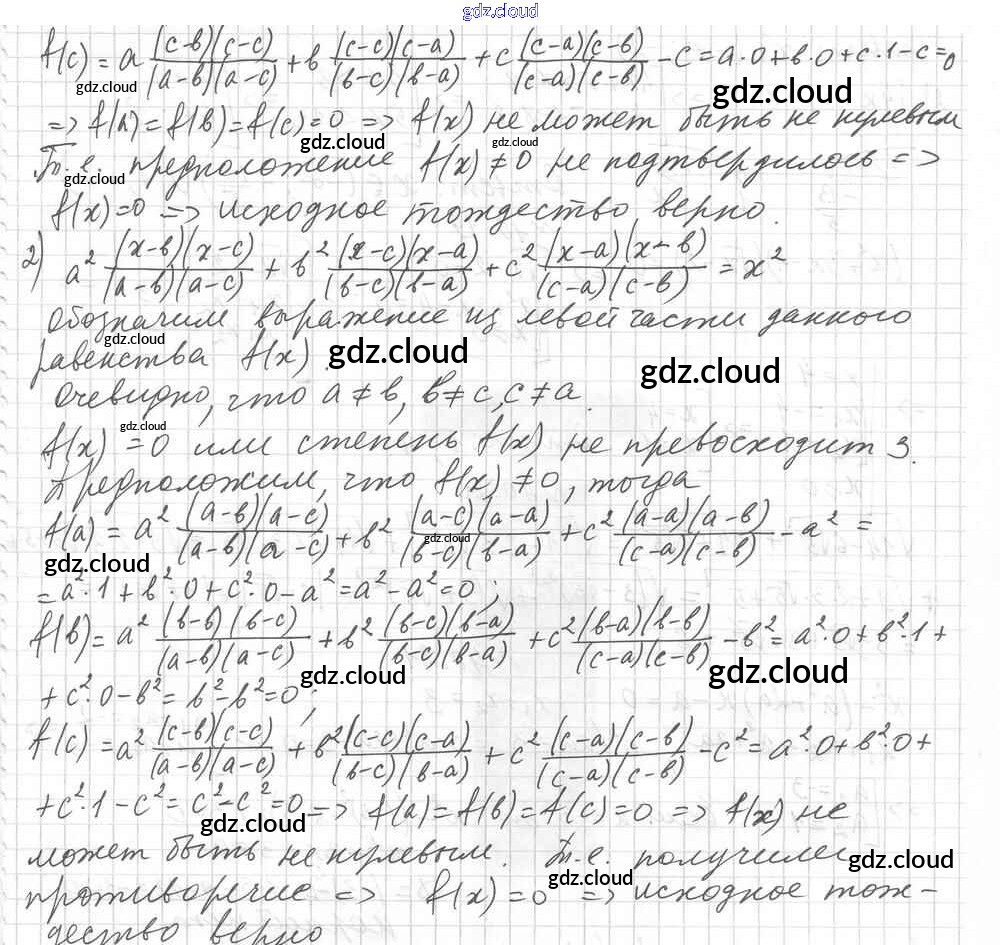 gdz.cloud
f(c) = a (c-в)(c-c)/(a-в)(a-c) + в (c-c)(c-a)/(в-c)(в-a) + c (c-a)(c-в)/(c-a)(c-в) - c = a·0+в·0+c·1-c=0
gdz.cloud gdz.cloud
=> f(a)=f(в)=f(c)=0 => f(x) не может быть не нулевым
gdz.cloud gdz.cloud
Т.е. предположение f(x)≠0 не подтвердилось =>
gdz.cloud
f(x)=0 => исходное тождество верно.
2) a² (x-в)(x-c)/(a-в)(a-c) + в² (x-c)(x-a)/(в-c)(в-a) + c² (x-a)(x-в)/(c-a)(c-в) = x²
Обозначим выражение из левой части данного
gdz.cloud
равенства f(x).
gdz.cloud gdz.cloud
Очевидно, что a≠в, в≠c, c≠a.
gdz.cloud
f(x)=0 или степень f(x) не превосходит 3.
Предположим, что f(x)≠0, тогда
f(a) = a² (a-в)(a-c)/(a-в)(a-c) + в² (a-c)(a-a)/(в-c)(в-a) + c² (a-a)(a-в)/(c-a)(c-в) - a² =
gdz.cloud gdz.cloud
= a²·1+в²·0+c²·0-a²=a²-a²=0;
f(в)= a² (в-в)(в-c)/(a-в)(a-c) + в² (в-c)(в-a)/(в-c)(в-a) + c² (в-a)(в-в)/(c-a)(c-в) - в²= a²·0+в²·1+
gdz.cloud gdz.cloud
+c²·0-в²= в²-в²=0;
f(c) = a² (c-в)(c-c)/(a-в)(a-c) + в² (c-c)(c-a)/(в-c)(в-a) + c² (c-a)(c-в)/(c-a)(c-в) - c²= a²·0+в²·0+
+c²·1-c²= c²-c²=0 => f(a)=f(в)=f(c)=0. => f(x) не
gdz.cloud
может быть не нулевым. Т.е. получилсь
gdz.cloud gdz.cloud
противоречие => f(x)=0 => исходное тож-
дество верно